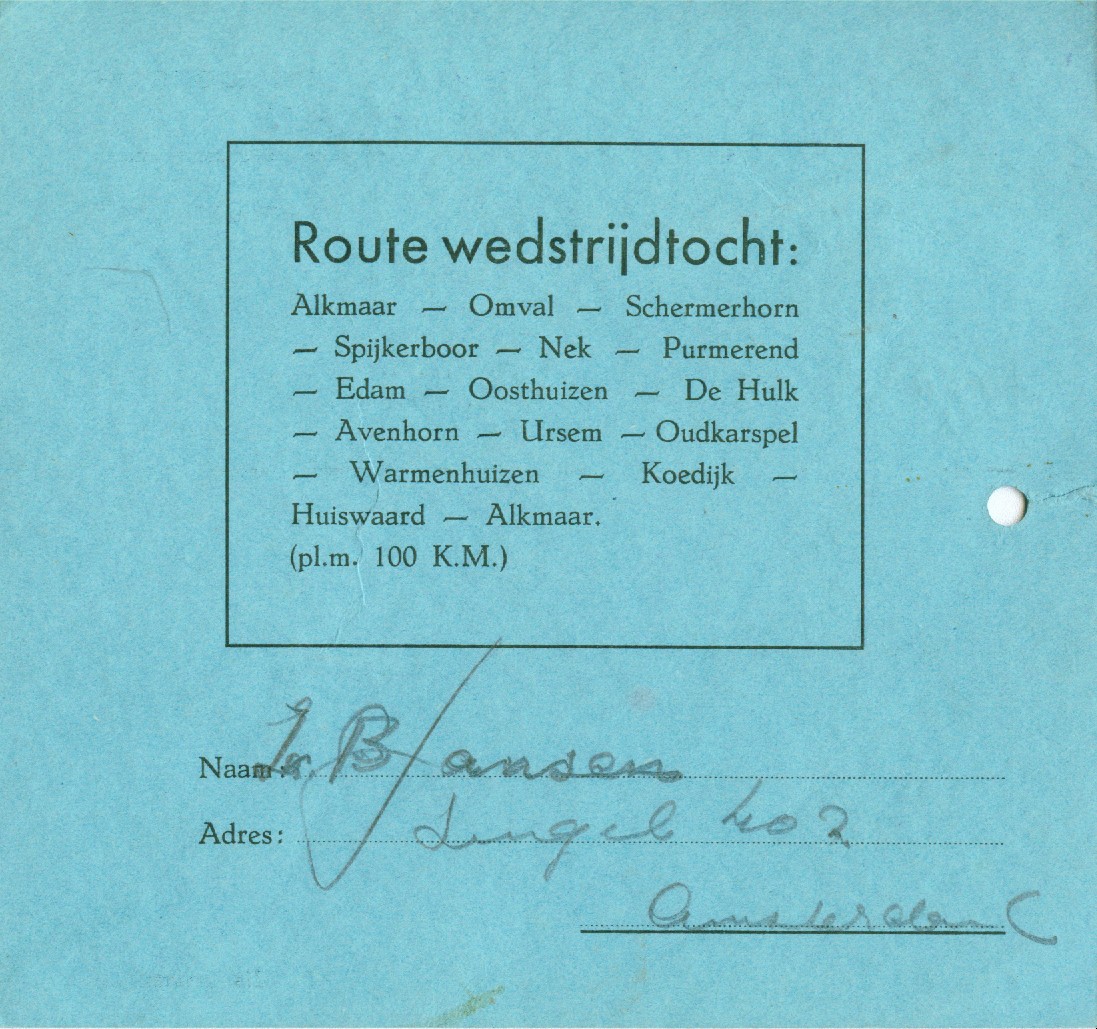 Route wedstrijdtocht:
Alkmaar — Omval — Schermerhorn
— Spijkerboor — Nek — Purmerend
— Edam — Oosthuizen — De Hulk
— Avenhorn — Ursem — Oudkarspel
— Warmenhuizen — Koedijk —
Huiswaard — Alkmaar.
(pl.m. 100 K.M.)
Naam: B Jansen
Adres: Singel 402
Amsterdam C